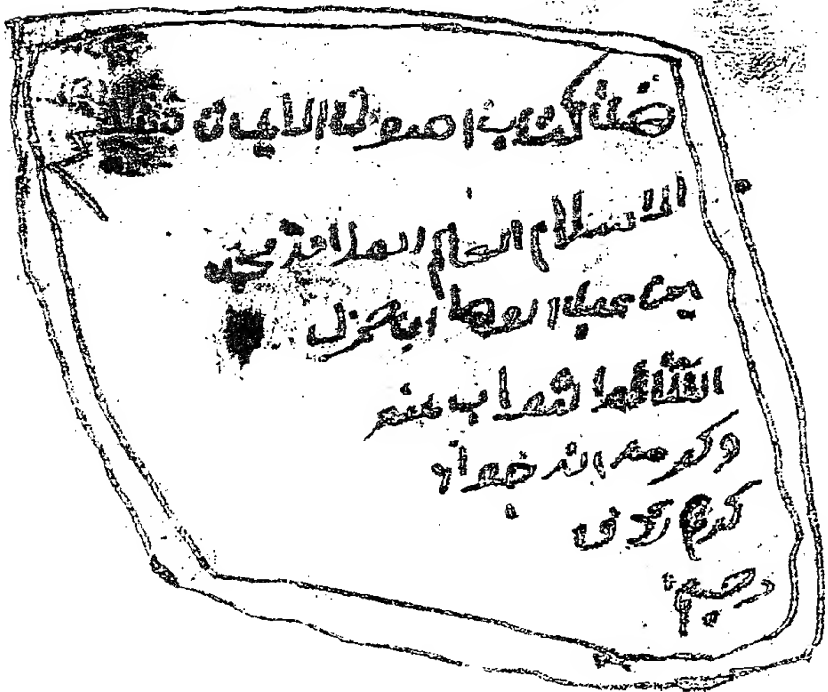 هذا كتاب اصول الايمان
الاسلام العالم العلامة محمد
بن عبد الوهاب اجزل
الله له الثواب بمنه
وكرمه انه جواد
كريم رؤف
رحيم